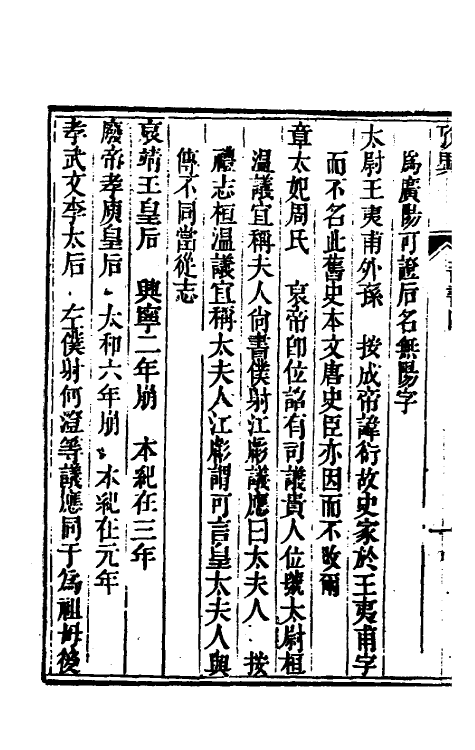 爲廣陽可證后名無陽字
太尉王夷甫外孫　按成帝諱衍故史家於王夷甫字
而不名此舊史本文唐史臣亦因而不改爾
章太妃周氏　哀帝卽位詔有司議貴人位號太尉桓
溫議宜稱夫人尙書僕射江虨議應曰太夫人　按
禮志桓溫議宜稱太夫人江虨謂可言皇太夫人與
傳不同當從志
哀靖王皇后　興寧二年崩　本紀在三年
廢帝孝庾皇后　太和六年崩　本紀在元年
孝武文李太后　左僕射何澄等議應同于爲祖母後